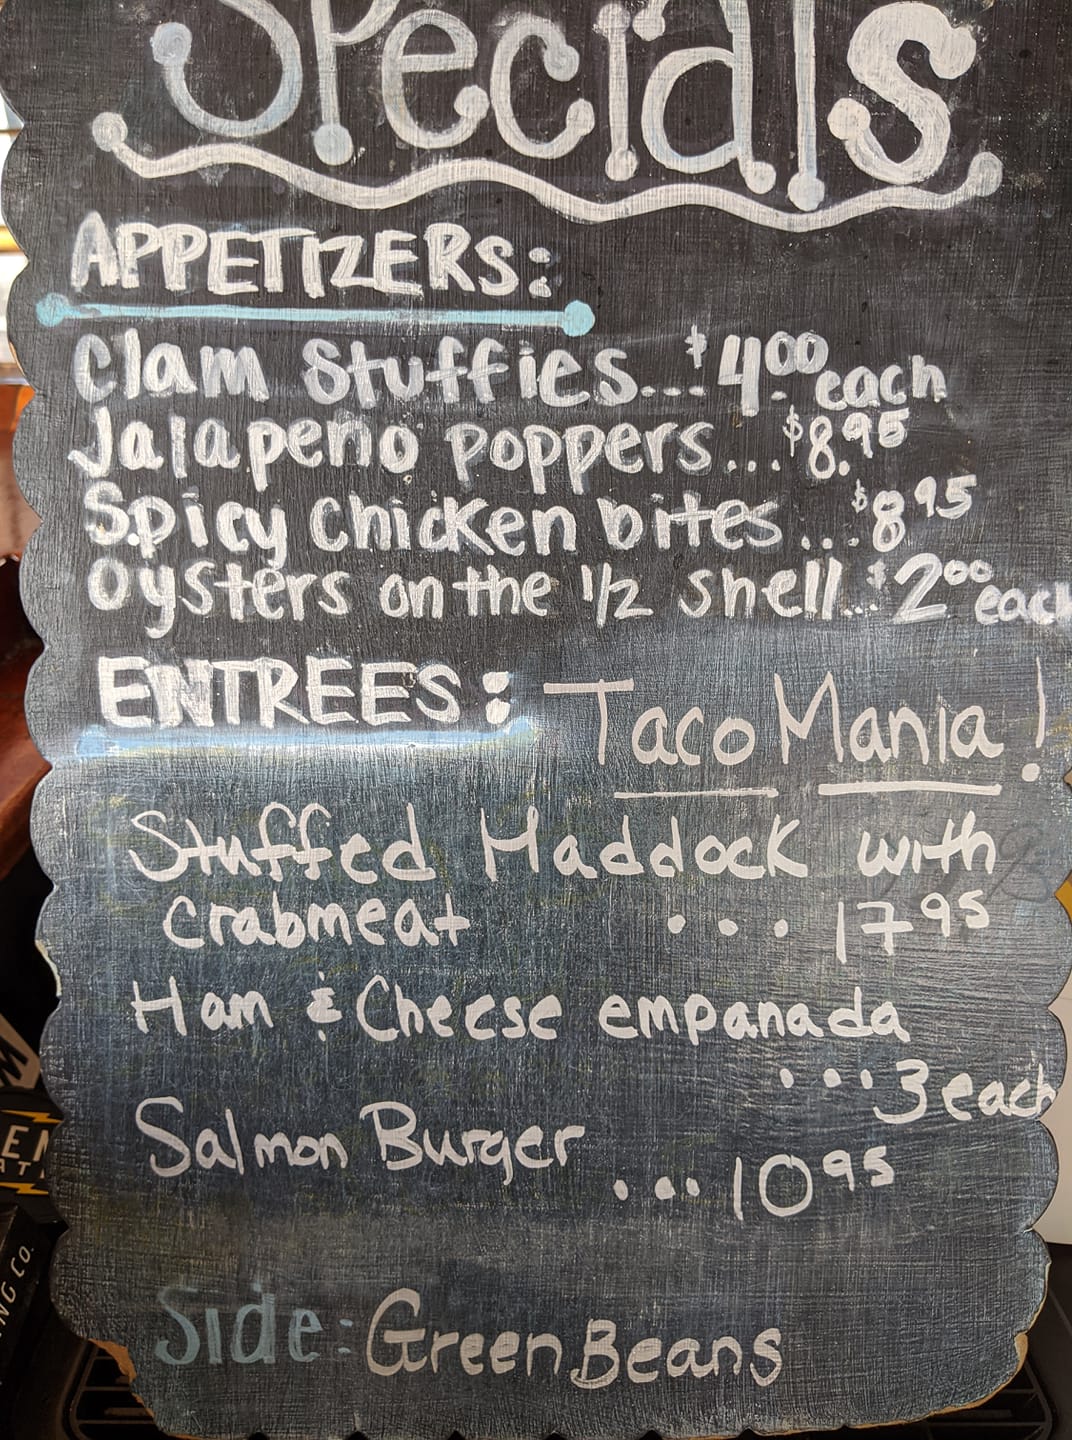 Specials
APPETIZERS:
Clam Stuffies...$4.00 each
Jalapeno poppers...$8.95
Spicy Chicken bites...$8 95
Oysters on the 1/2 shell...$2 00 each
ENTREES: Taco Mania!
Stuffed Haddock with
crabmeat ...17 95
Ham & Cheese empanada
...3 each
Salmon Burger
...10 95
Side: Green Beans
NG CO.